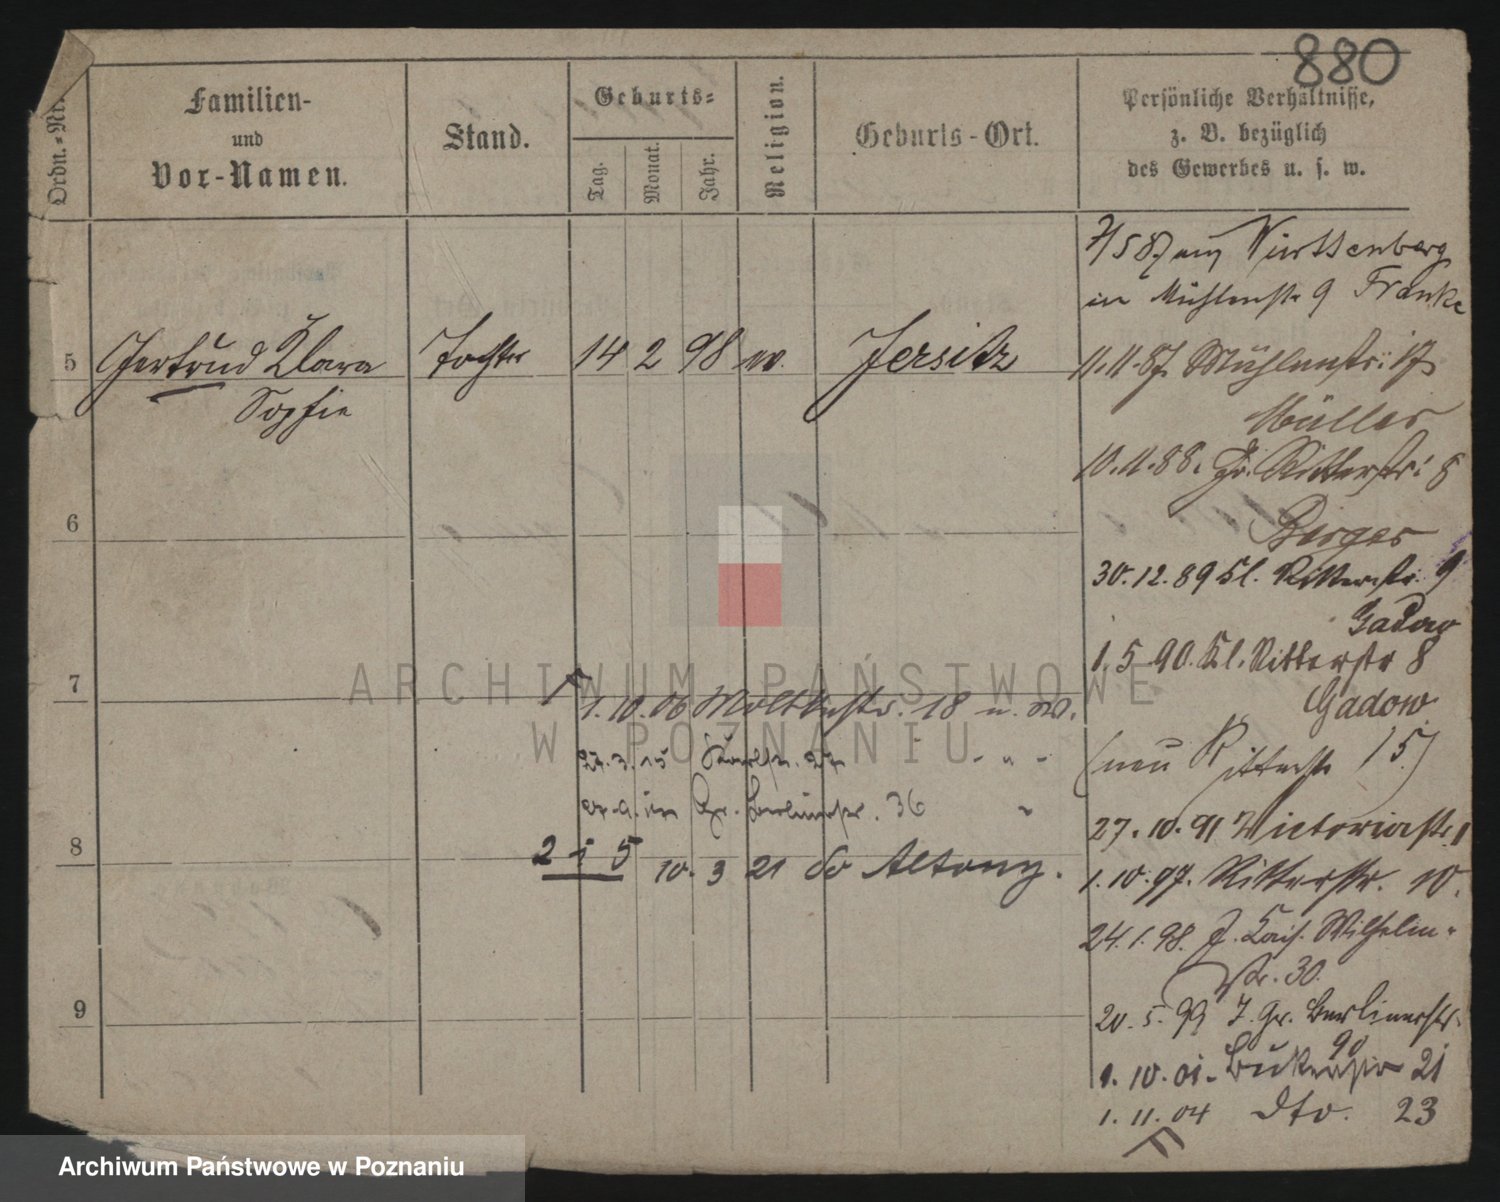 880
Ordn.-Nr.
Familien-
und
Vor-Namen.
Stand.
Geburts-
Tag.
Monat.
Jahr.
Religion.
Geburts-Ort.
Persönliche Verhältnisse,
z. B. bezüglich
des Gewerbes u. s. w.
7/5 87 aus Württenberg
in Mühlenstr 9 Franke
5 Gertrud Klara Tochter 14 2 98 Jersitz
Sophie
11.11.87. Mühlenstr. 17
Müller
10.11.88. Gr. Ritterstr. 8
Berger
6
30.12.89 Kl. Ritterstr. 9
Gadow
1.5.90. Kl. Ritterstr 8
Gadow
7
1.10.06 Moltkestr. 18 u. W.
(neu Ritterstr 15)
27.3.15 27 - " -
Gr. Berlinerstr. 36 "
27.10.91 Victoriastr.
8
2 i 5 10.3 21 Altona.
1.10.97. Ritterstr. 10.
24.1.98. J. Kais. Wilhelm-
Str. 30.
9
20.5.99 J. Gr. Berlinerstr.
90
1.10.01. Bukerstr 21
1.11.04 dto. 23
ARCHIWUM PAŃSTWOWE
W POZNANIU
Archiwum Państwowe w Poznaniu